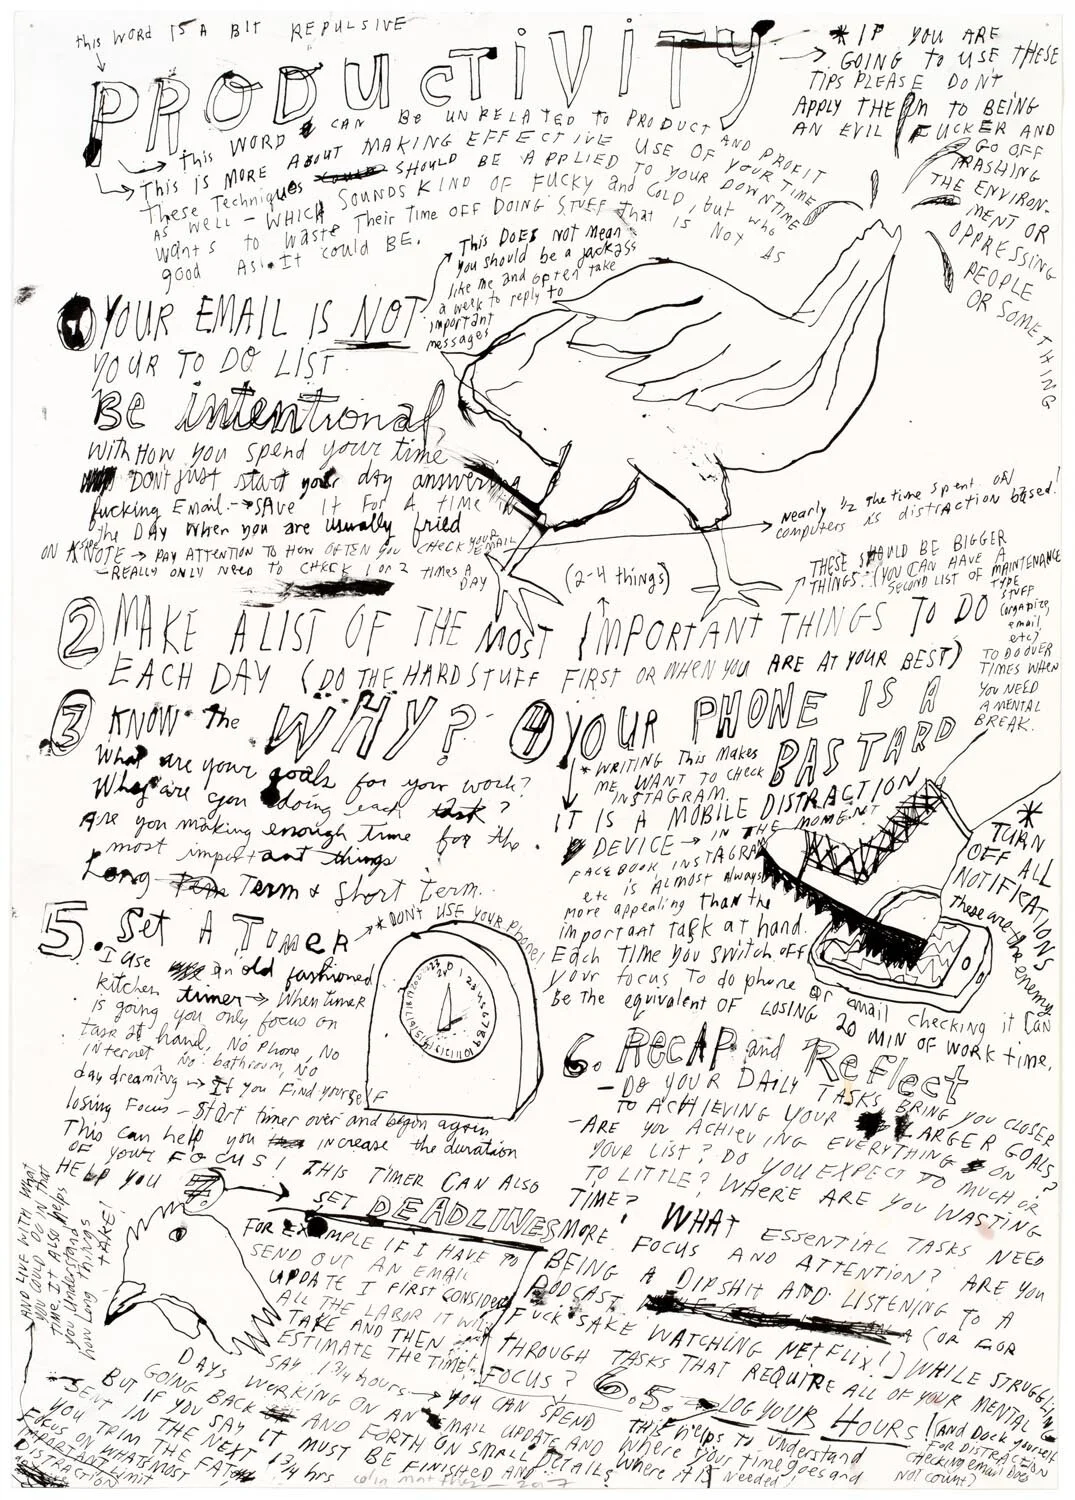 this WORD IS A BIT REPULSIVE
PRODUCTIVITY
* IF YOU ARE
GOING TO USE THESE
TIPS PLEASE DON'T
APPLY THEM TO BEING
AN EVIL FUCKER AND
GO OFF
TRASHING
THE ENVIRON-
MENT OR
OPPRESSING
PEOPLE
OR SOMETHING
THIS WORD CAN BE UNRELATED TO PRODUCT AND PROFIT
THIS IS MORE ABOUT MAKING EFFECTIVE USE OF YOUR TIME
These Techniques SHOULD BE APPLIED TO YOUR DOWNTIME
AS WELL - WHICH SOUNDS KIND OF FUCKY and COLD, but who
wants to waste Their Time OFF DOING STUFF that IS NOT AS
good AS IT COULD BE.
This DOES not mean
you should be a jackass
like me and often take
a week to reply to
important
messages
1 YOUR EMAIL IS NOT
YOUR TO DO LIST.
Be intentional
With How you spend your time
DON'T just start your day answering
fucking Email. → SAVE IT FOR A TIME IN
the DAY when you are usually fried
NOTE → PAY ATTENTION TO HOW OFTEN YOU CHECK YOUR EMAIL
- REALLY ONLY NEED TO CHECK 1 or 2 TIMES A
DAY
nearly 1/2 the time spent on
computers is distraction based!
(2-4 things)
THESE SHOULD BE BIGGER
THINGS. (YOU CAN HAVE A
SECOND LIST OF MAINTENANCE
TYPE
STUFF
(organize,
email
etc)
TO DO OVER
TIMES WHEN
YOU NEED
A MENTAL
BREAK.
2 MAKE A LIST OF THE MOST IMPORTANT THINGS TO DO
EACH DAY (DO THE HARD STUFF FIRST OR WHEN YOU ARE AT YOUR BEST)
3 KNOW the WHY?
What are your goals for your work?
Why are you doing each task?
Are you making enough time for the
most important things
Long Term & Short Term.
4 YOUR PHONE IS A
BASTARD
* WRITING This makes
ME WANT TO CHECK
INSTAGRAM.
IT IS A MOBILE DISTRACTION
DEVICE → IN THE MOMENT
FACEBOOK INSTAGRAM
etc is ALMOST Always
more appealing than the
important task at hand.
Each TIME you switch off
your focus To do phone or email checking it can
Be the equivalent OF LOSING 20 MIN OF WORK time.
* TURN
OFF ALL
NOTIFICATIONS
These are the enemy
5. Set A Timer
* DON'T USE YOUR Phone!
I use an old fashioned
kitchen timer → When timer
is going you only focus on
task at hand, No phone, No
internet No bathroom, No
day dreaming → If you find yourself
losing Focus - start timer over and begin again
This can help you increase the duration
OF your FOCUS! THIS TIMER CAN ALSO
HELP YOU SET DEADLINES
FOR EXAMPLE IF I HAVE TO
SEND OUT AN EMAIL
UPDATE I FIRST CONSIDER
ALL THE LABOR IT WILL
TAKE AND THEN
ESTIMATE THE TIME!
SAY 1 3/4 hours → YOU CAN SPEND
DAYS WORKING ON AN EMAIL UPDATE AND
GOING BACK AND FORTH ON SMALL DETAILS
BUT IF YOU SAY IT MUST BE FINISHED AND
SENT IN THE NEXT 1 3/4 hrs
YOU TRIM THE FAT
FOCUS ON WHATS MOST
IMPORTANT
DISTRACTION
AND LIVE WITH WHAT
YOU COULD DO IN THAT
TIME. IT Also helps
you understand
how Long things
TAKE!
6. RECAP and Reflect
- DO YOUR DAILY TASKS BRING YOU CLOSER
TO ACHIEVING YOUR LARGER GOALS?
- ARE YOU ACHIEVING EVERYTHING ON
YOUR LIST? DO YOU EXPECT TO MUCH OR
TO LITTLE? WHERE ARE YOU WASTING
TIME? WHAT ESSENTIAL TASKS NEED
MORE FOCUS AND ATTENTION? ARE YOU
BEING A DIPSHIT AND LISTENING TO A
PODCAST (OR FOR
FUCK SAKE WATCHING NETFLIX!) WHILE STRUGGLING
THROUGH TASKS THAT REQUIRE ALL OF YOUR MENTAL
FOCUS?
6.5. LOG YOUR HOURS
THIS helps to understand
Where your time goes and
where it is needed!
(and Dock yourself
FOR DISTRACTION
CHECKING email DOES
NOT COUNT)